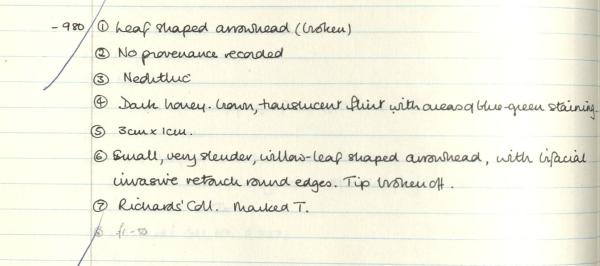 -980 ① Leaf shaped arrowhead (broken)
② No provenance recorded
③ Neolithic
④ Dark honey-brown, translucent flint with areas of blue-green staining.
⑤ 3cm x 1cm.
⑥ Small, very slender, willow-leaf shaped arrowhead, with bifacial
invasive retouch round edges. Tip broken off.
⑦ Richards' Coll. Marked T.
£1-50